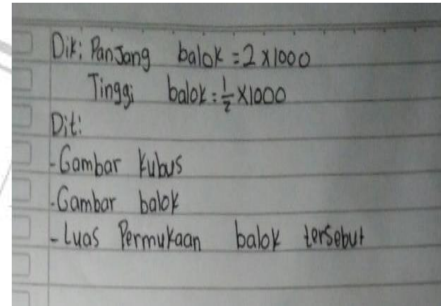 Dik: Panjang balok = 2 x 1000
Tinggi balok = 1/2 x 1000
Dit:
- Gambar kubus
- Gambar balok
- Luas Permukaan balok tersebut